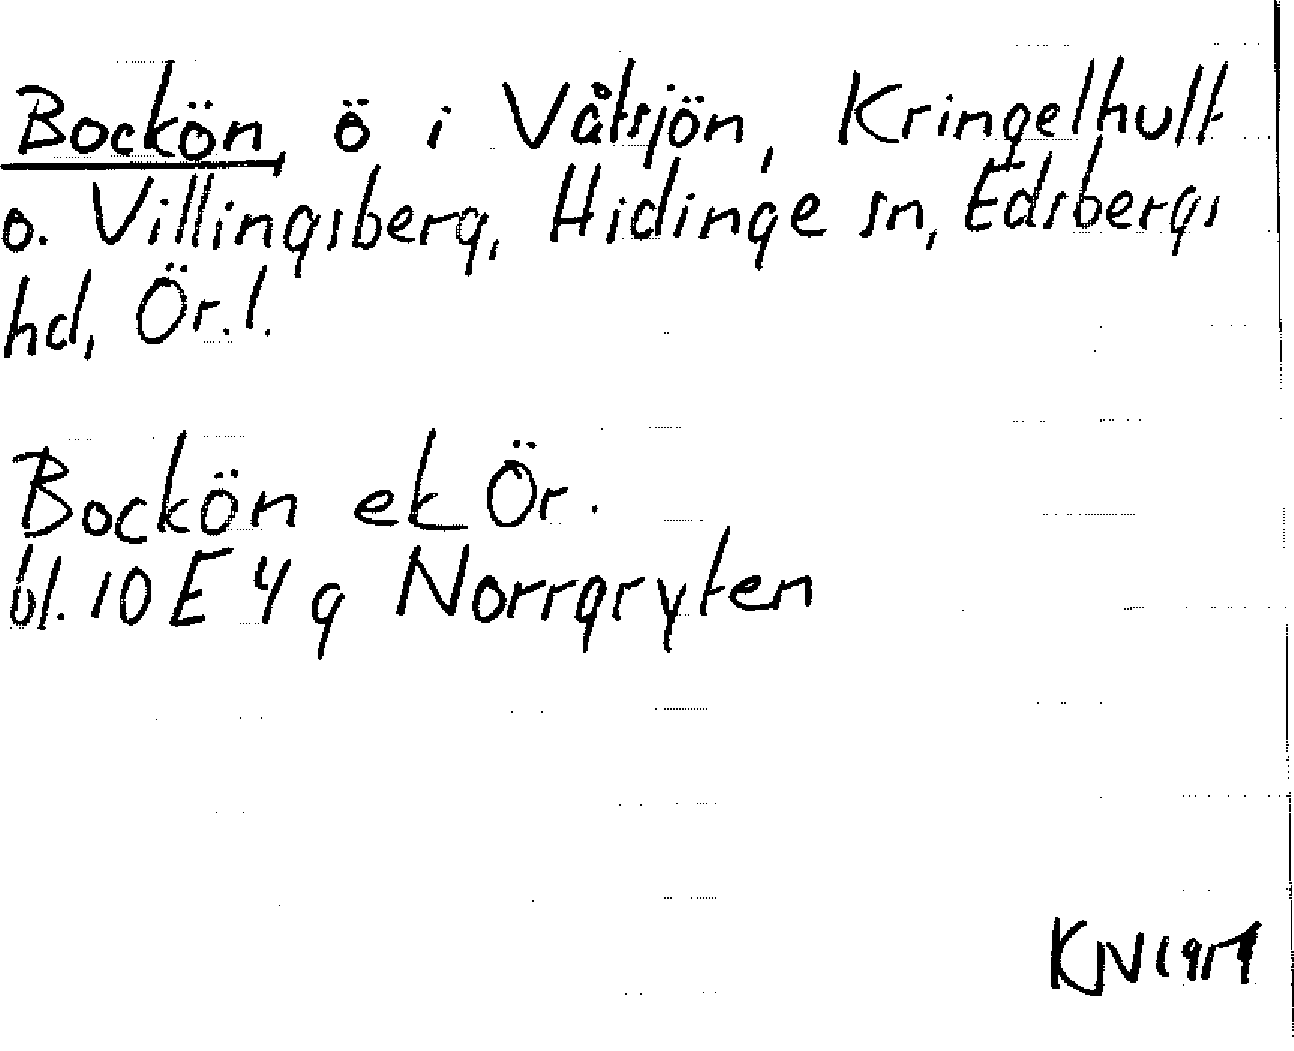 Bockön, ö i Våtsjön, Kringelhult
o. Villingsberg, Hidinge sn, Edsbergs
hd, Ör. l.
Bockön ek Ör.
bl. 10 E 4 g Norrgryten